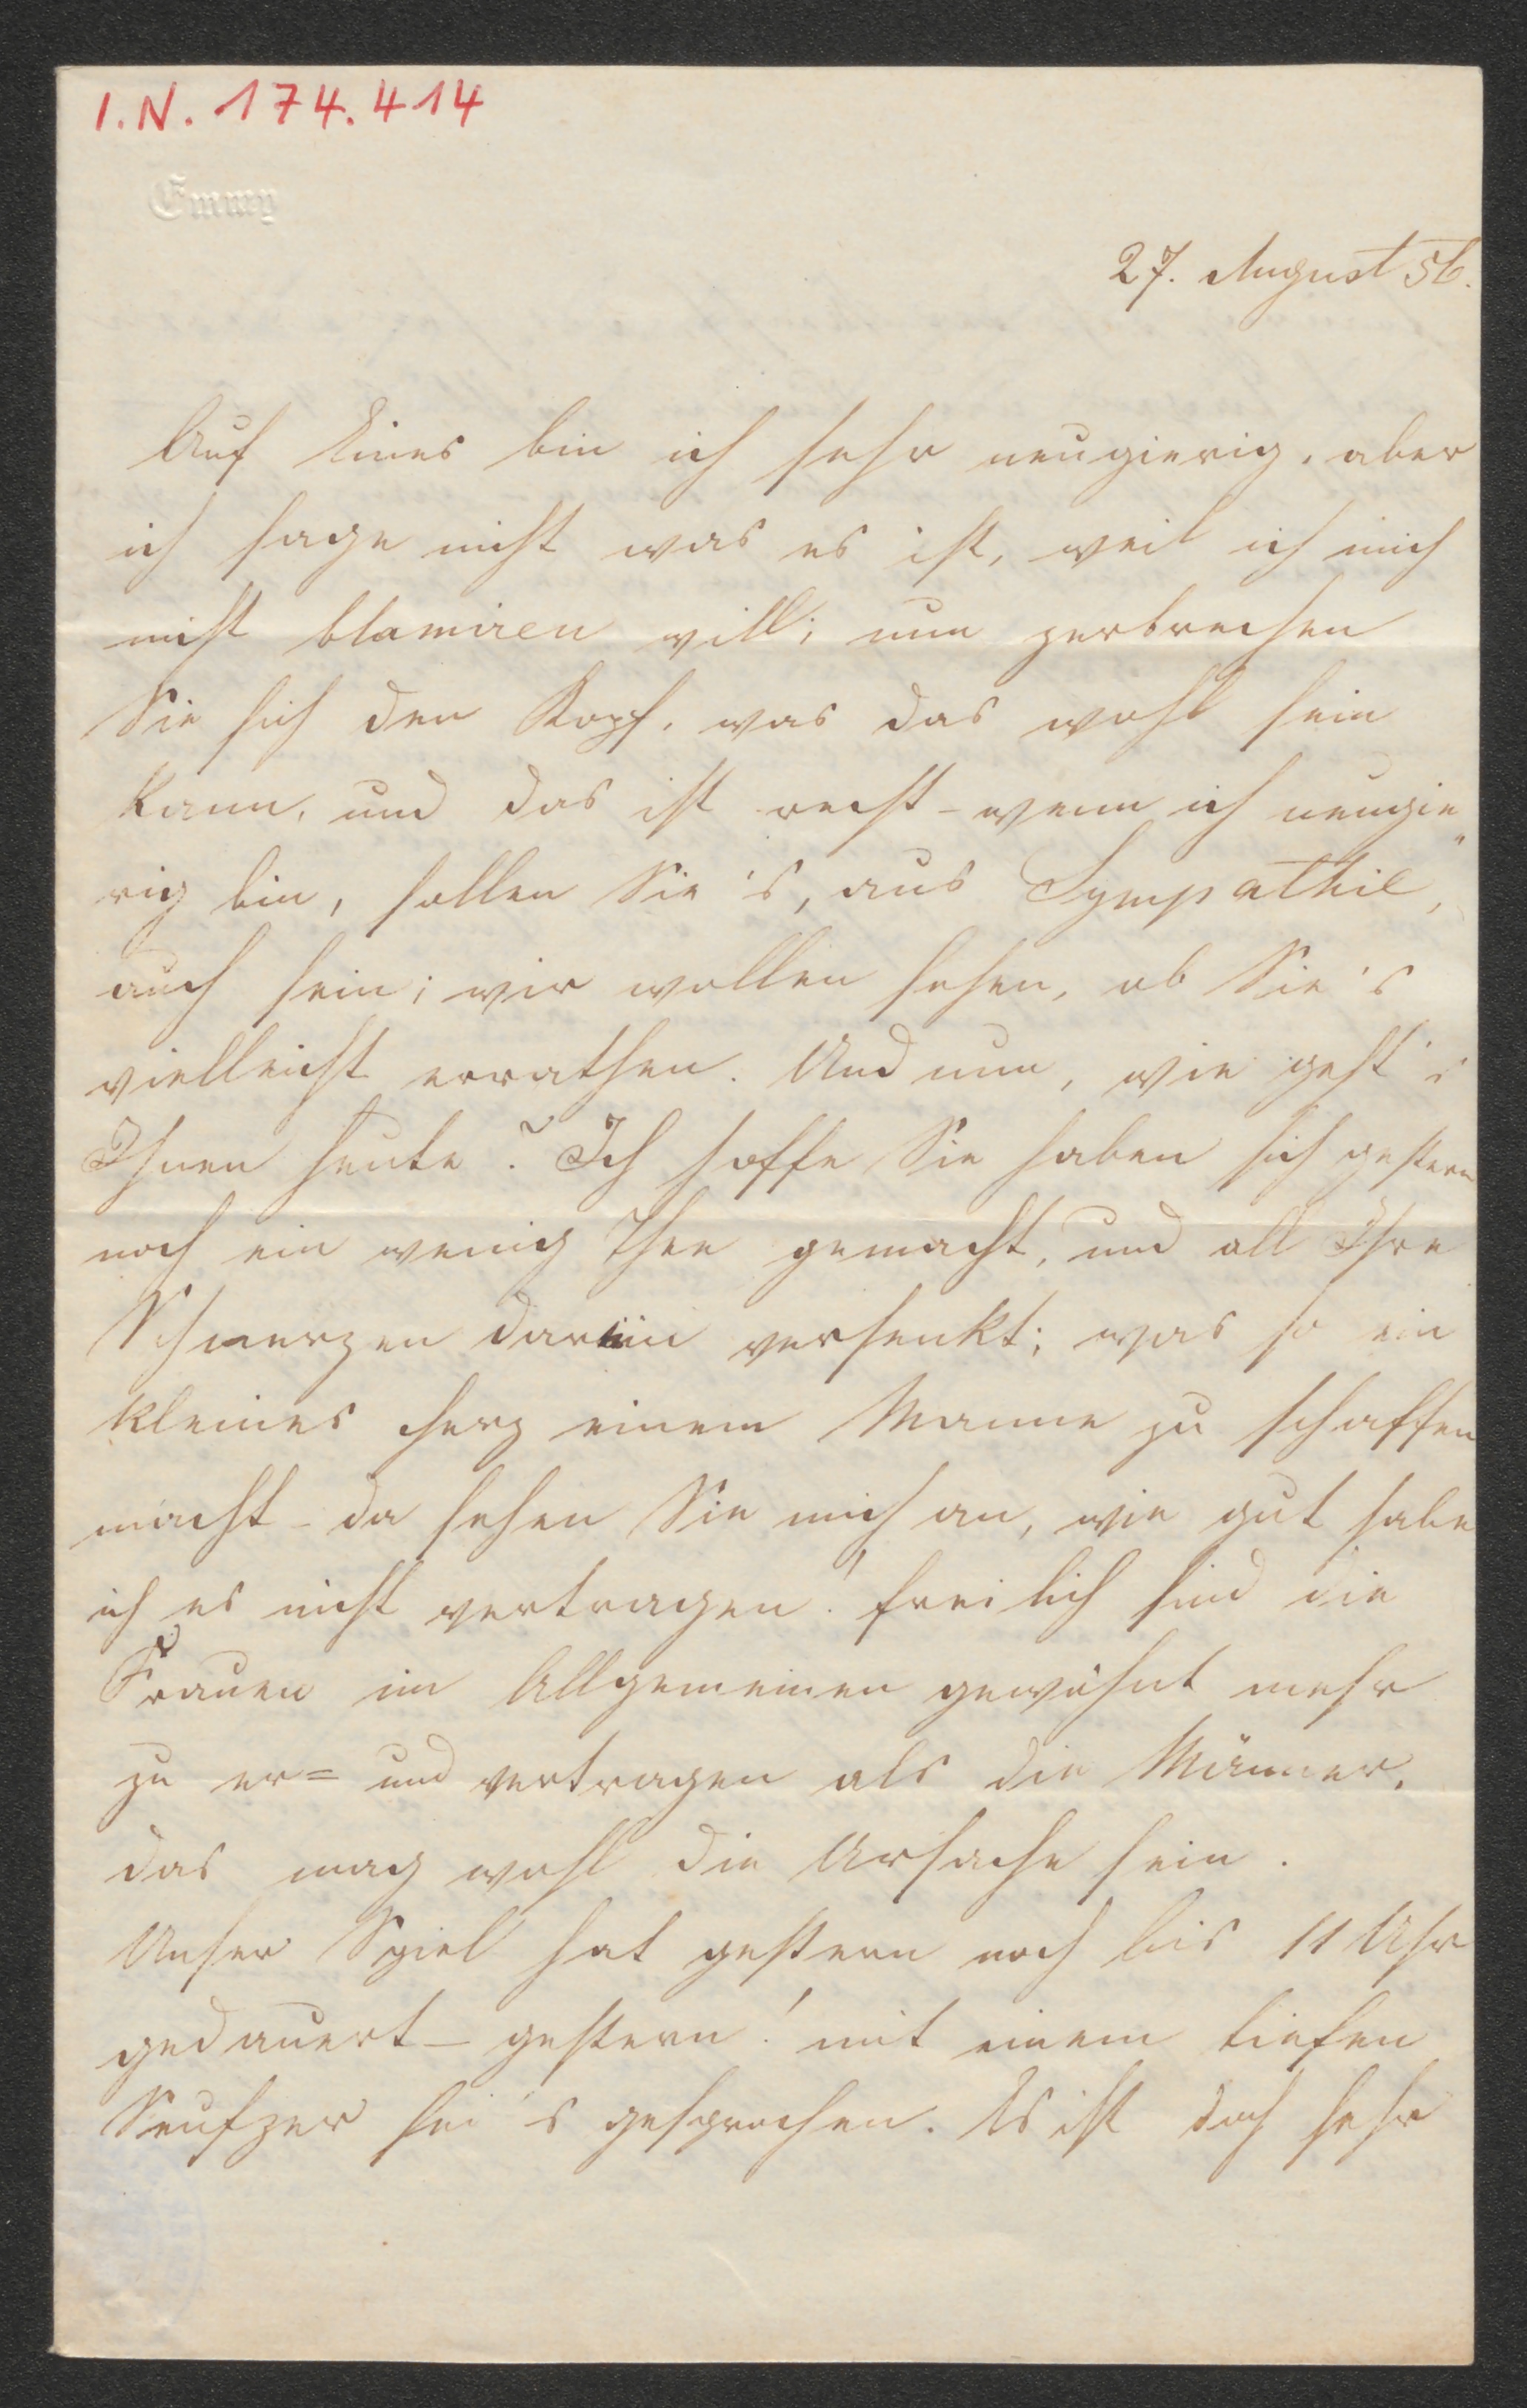 I.N. 174.414
Emmy
27. August 56.
Auf Eines bin ich sehr neugierig, aber
ich sage nicht was es ist, weil ich mich
nicht blamiren will; nun zerbrechen
Sie sich den Kopf, was das wohl sein
kann, und das ist recht - wenn ich neugie„
rig bin, sollen Sie's, aus Sympathie,
auch sein; wir wollen sehen, ob Sie's
vielleicht errathen. Und nun, wie geht's
Ihnen heute? Ich hoffe Sie haben sich gestern
noch ein wenig Thee gemacht, und all Ihre
Schmerzen darin versenkt; was so ein
kleines Herz einem Manne zu schaffen
macht - da sehen Sie mich an, wie gut habe
ich es nicht vertragen! freilich sind die
Frauen im Allgemeinen gewöhnt mehr
zu er= und vertragen als die Männer,
das mag wohl die Ursache sein.
Unser Spiel hat gestern noch bis 11 Uhr
gedauert - gestern! mit einem tiefen
Seufzer sei's gesprochen. Es ist doch sehr